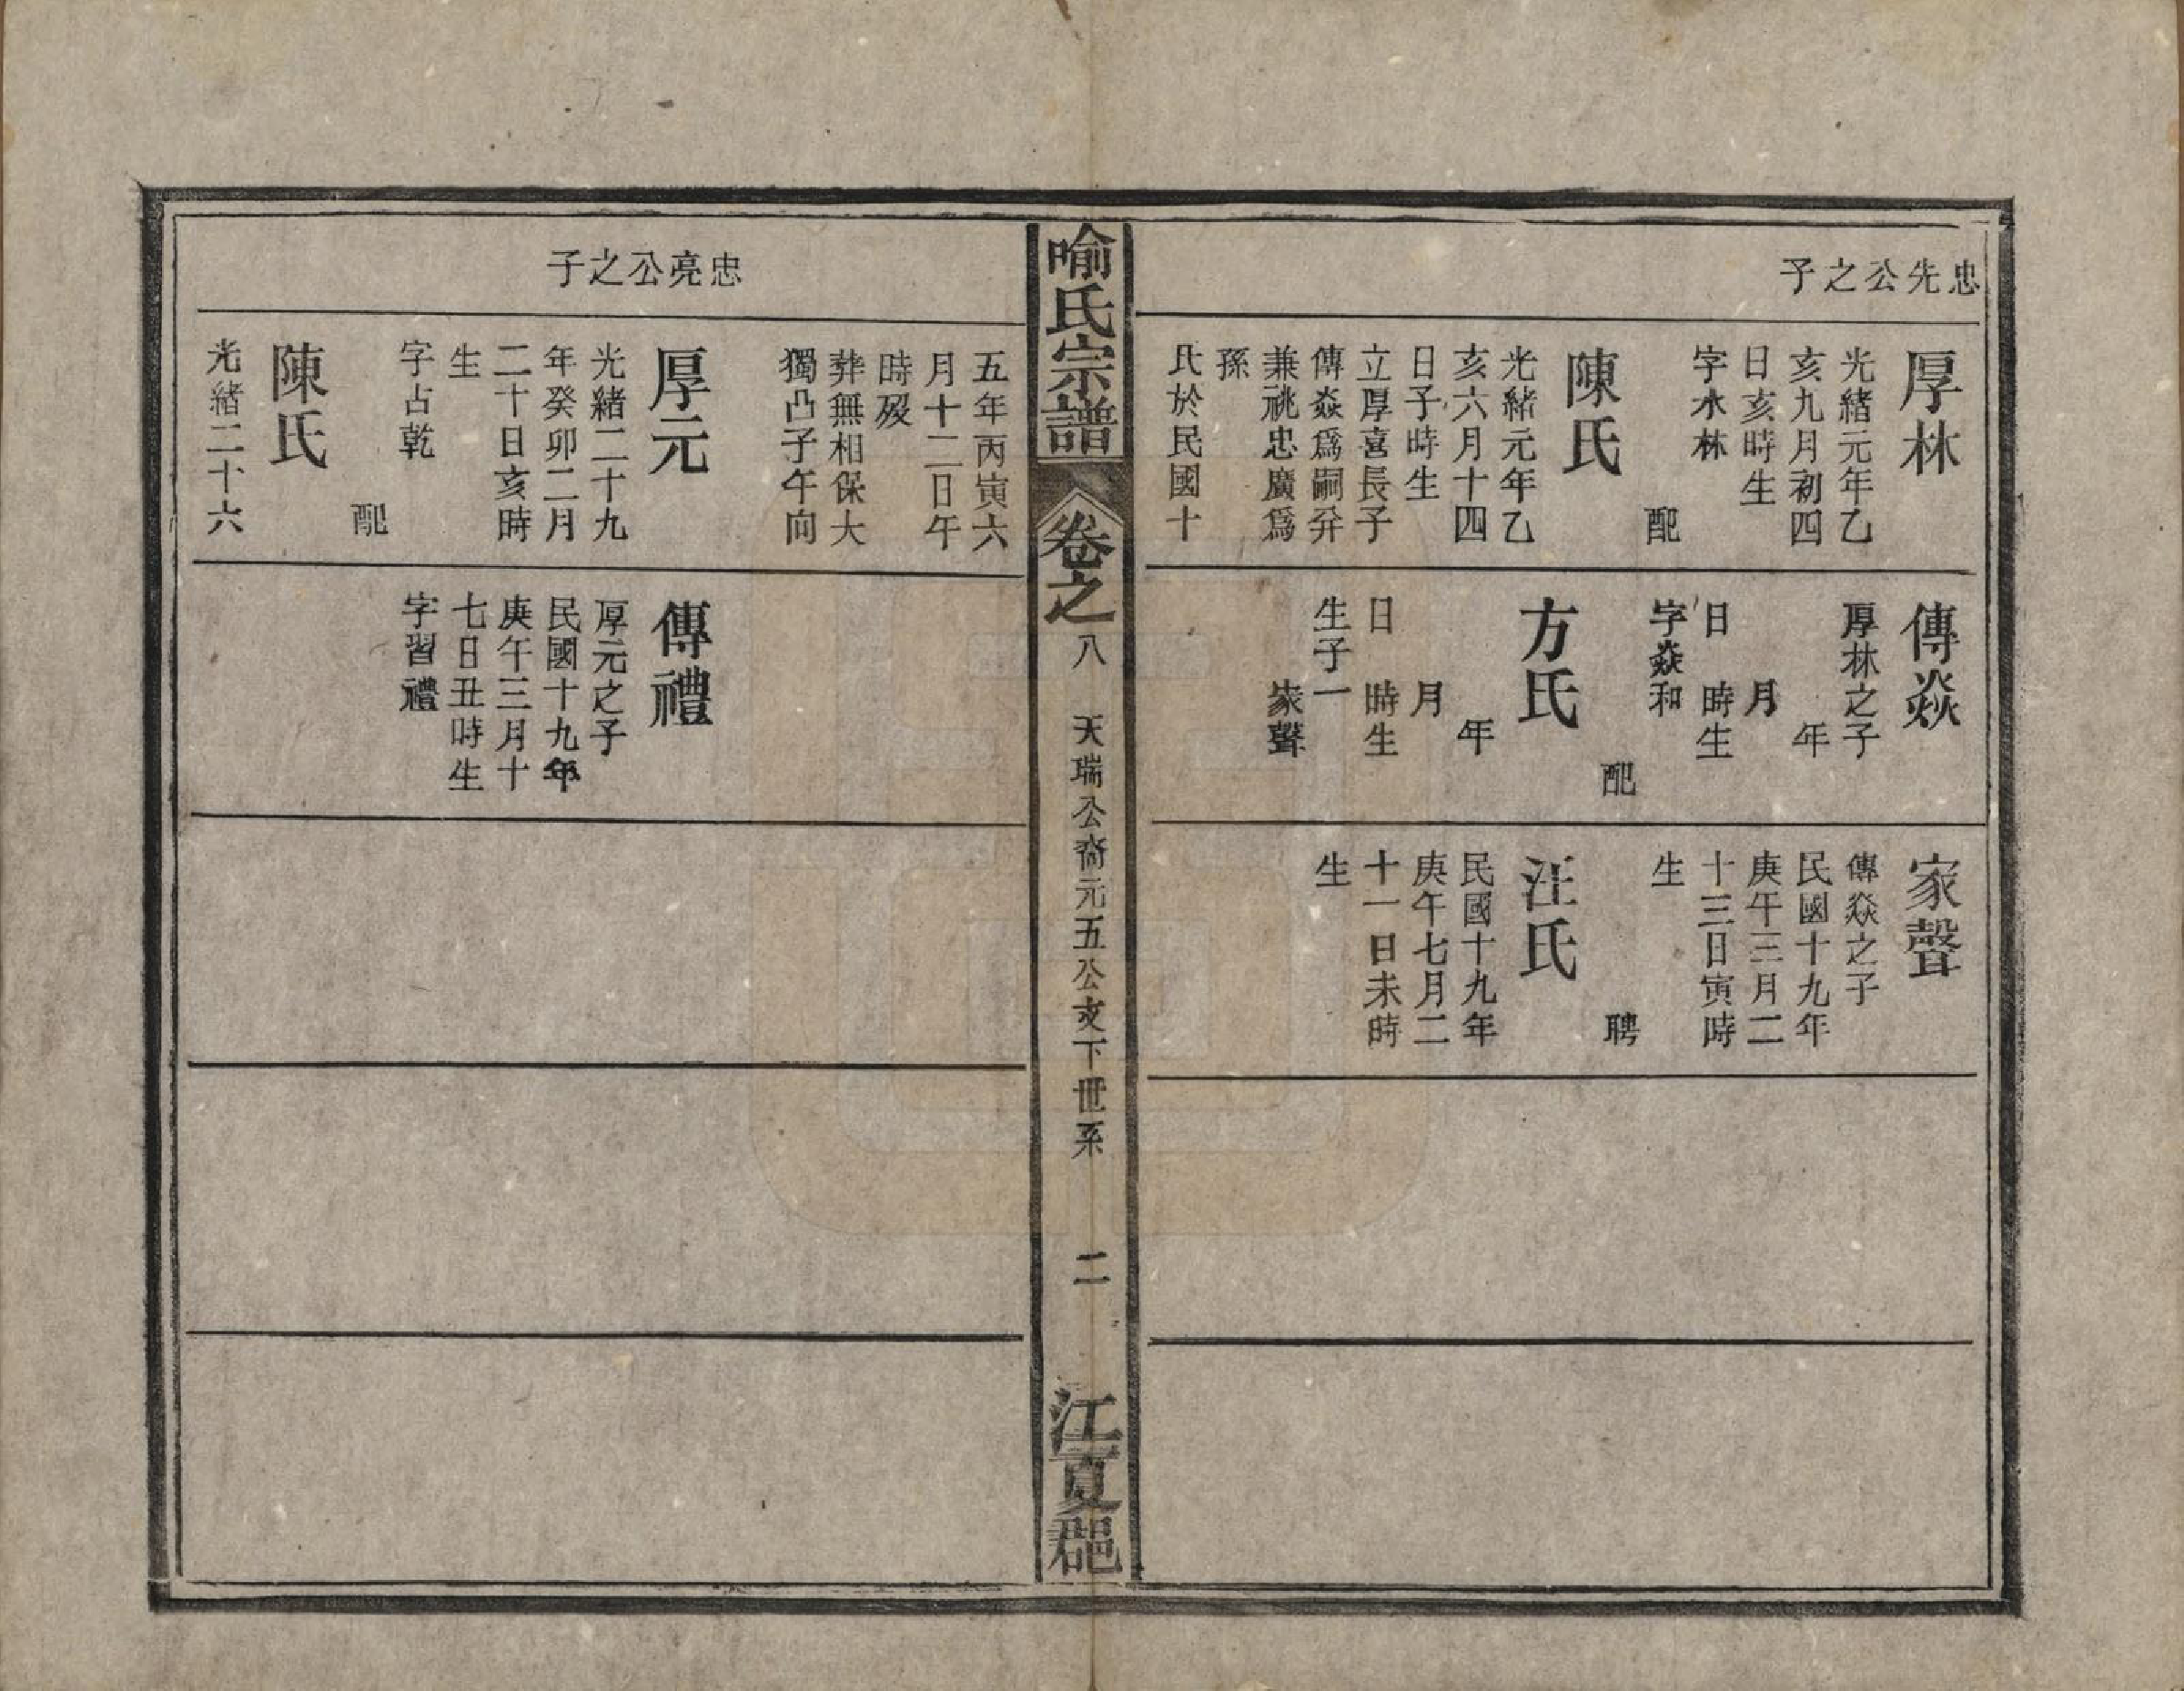 忠先公之子
厚林
光緒元年乙
亥九月初四
日亥時生
字水林
配
陳氏
光緒元年乙
亥六月十四
日子時生
立厚喜長子
傳焱爲嗣并
兼祧忠廣爲
孫
氏於民國十
傳焱
厚林之子
年
月
日 時生
字焱和
配
方氏
年
月
日 時生
生子一
家聲
家聲
傳焱之子
民國十九年
庚午三月二
十三日寅時
生
聘
汪氏
民國十九年
庚午七月二
十一日未時
生
喻氏宗譜
卷之八
天瑞公裔元五公支下世系
二
江夏郡
忠亮公之子
五年丙寅六
月十二日午
時歿
葬無相保大
獨凸子午向
厚元
光緒二十九
年癸卯二月
二十日亥時
生
字占乾
配
陳氏
光緒二十六
傳禮
厚元之子
民國十九年
庚午三月十
七日丑時生
字習禮